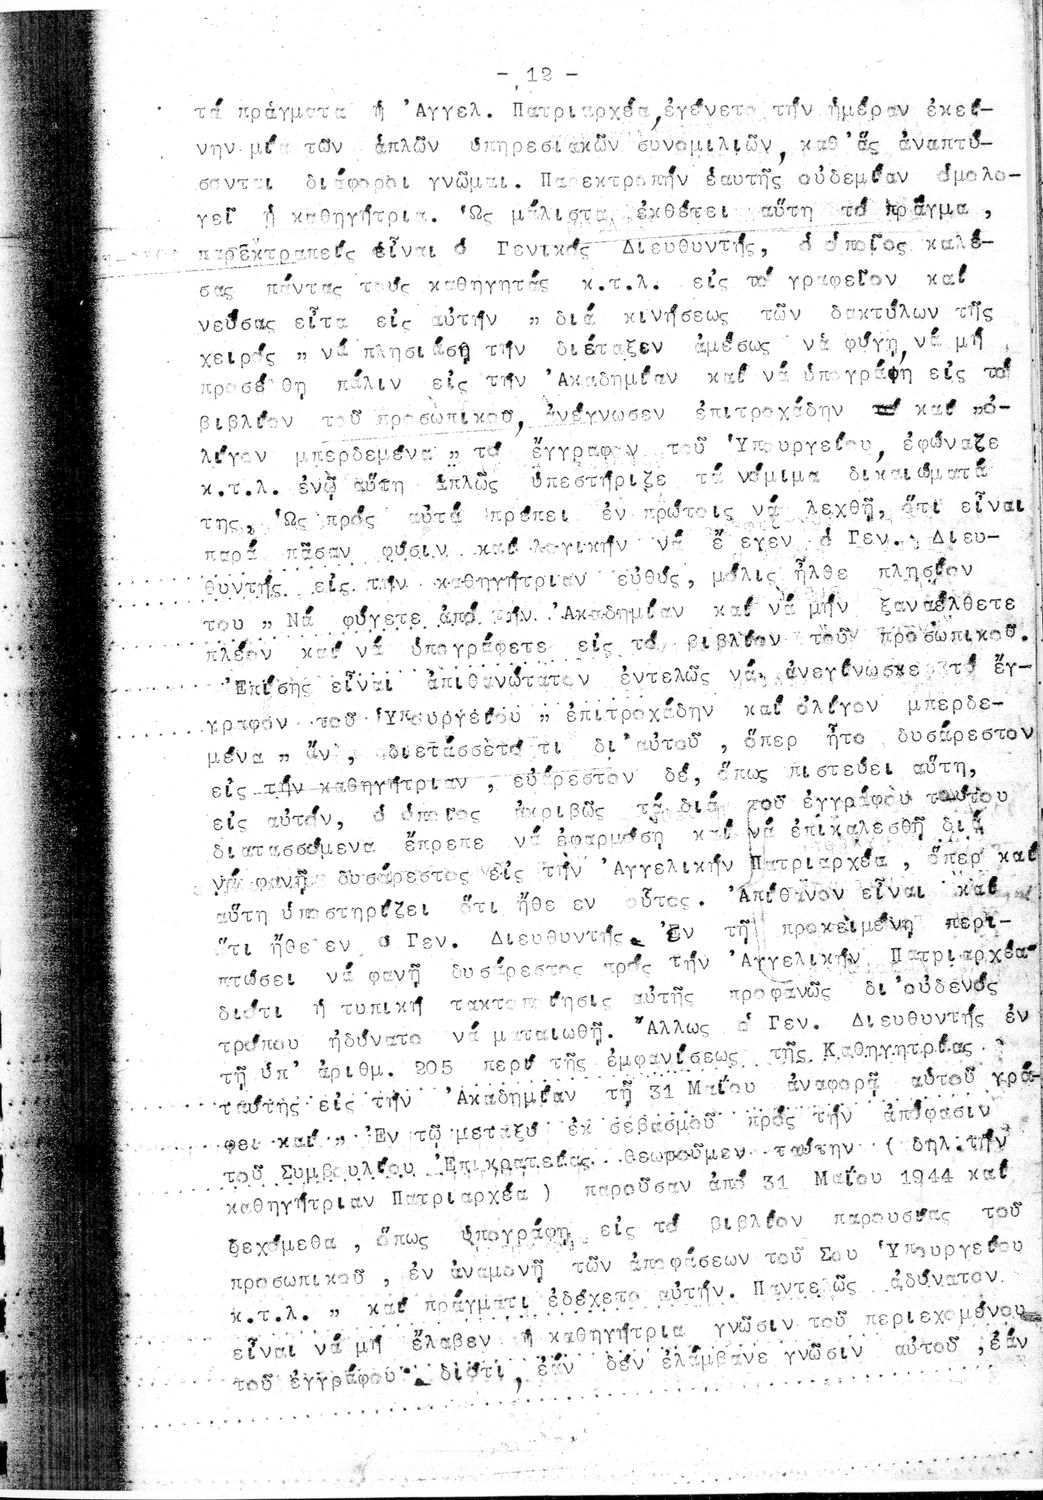 - 12 -
τά πράγματα ἡ Ἀγγελ. Πατριαρχέα, ἐγένετο τήν ἡμέραν ἐκεί-
νην μία τῶν ἁπλῶν ὑπηρεσιακῶν συνομιλιῶν, καθ'ἅς ἀναπτύ-
σονται διάφοροι γνῶμαι. Παρεκτροπήν ἑαυτῆς οὐδεμίαν ὁμολο-
γεῖ ἡ καθηγήτρια. Ὡς μάλιστα ἐκθέτει αὕτη τό πρᾶγμα,
παρεκτραπείς εἶναι ὁ Γενικός Διευθυντής, ὁ ὁποῖος καλέ-
σας πάντας τούς καθηγητάς κ.τ.λ. εἰς τό γραφεῖον καί
νεύσας εἶτα εἰς αὐτήν " διά κινήσεως τῶν δακτύλων τῆς
χειρός " νά πλησιάσῃ τήν διέταξεν ἀμέσως νά φύγῃ, νά μή
προσέ θῃ πάλιν εἰς τήν Ἀκαδημίαν καί νά ὑπογράφῃ εἰς τό
βιβλίον τοῦ προσωπικοῦ, ἀνέγνωσεν ἐπιτροχάδην καί "ὀ-
λίγον μπερδεμένα " τό ἔγγραφον τοῦ Ὑπουργείου, ἐφώναζε
κ.τ.λ. ἐνῷ αὕτη ἁπλῶς ὑπεστήριζε τά νόμιμα δικαιώματά
της, Ὡς πρός αὐτά πρέπει ἐν πρώτοις νά λεχθῇ, ὅτι εἶναι
παρά πᾶσαν φύσιν καί λογικήν νά ἔ εγεν ὁ Γεν. Διευ-
θυντής εἰς τήν καθηγήτριαν εὐθύς, μόλις ἦλθε πλησίον
του " Νά φύγετε ἀπό τήν Ἀκαδημίαν καί νά μήν ξαναέλθετε
πλέον καί νά ὑπογράφετε εἰς τό βιβλίον τοῦ προσωπικοῦ.
Ἐπίσης εἶναι ἀπιθανώτατον ἐντελῶς νά ἀνεγίνωσκε τό ἔγ-
γραφον τοῦ Ὑπουργείου " ἐπιτροχάδην καί ὀλίγον μπερδε-
μένα " ἄν, διετάσσετό τι δι'αὐτοῦ, ὅπερ ἦτο δυσάρεστον
εἰς τήν καθηγήτριαν, εὐάρεστον δέ, ὅπως πιστεύει αὕτη,
εἰς αὐτόν, ὁ ὁποῖος ἀκριβῶς τά διά τοῦ ἐγγράφου τούτου
διατασσόμενα ἔπρεπε νά ἐφαρμόσῃ καί νά ἐπικαλεσθῇ διά
νά φανῇ δυσάρεστος εἰς τήν Ἀγγελικήν Πατριαρχέα, ὅπερ καί
αὕτη ὑποστηρίζει ὅτι ἤθε εν οὗτος. Ἀπίθανον εἶναι καί
ὅτι ἤθε εν ὁ Γεν. Διευθυντής. Ἐν τῇ προκειμένῃ περι-
πτώσει νά φανῇ δυσάρεστος πρός τήν Ἀγγελικήν Πατριαρχέα
διότι ἡ τυπική τακτοποίησις αὐτῆς προφανῶς δι'οὐδενός
τρόπου ἠδύνατο νά ματαιωθῇ. Ἄλλως ὁ Γεν. Διευθυντής ἐν
τῇ ὑπ' ἀριθμ. 205 περί τῆς ἐμφανίσεως τῆς Καθηγητρίας
ταύτης εἰς τήν Ἀκαδημίαν τῇ 31 Μαΐου ἀναφορᾷ αὐτοῦ γρά-
φει καί " Ἐν τῷ μεταξύ ἐκ σεβασμοῦ πρός τήν ἀπόφασιν
τοῦ Συμβουλίου Ἐπικρατείας θεωροῦμεν ταύτην ( δηλ.τήν
καθηγήτριαν Πατριαρχέα ) παροῦσαν ἀπό 31 Μαΐου 1944 καί
δεχόμεθα, ὅπως ὑπογράφῃ εἰς τό βιβλίον παρουσίας τοῦ
προσωπικοῦ, ἐν ἀναμονῇ τῶν ἀποφάσεων τοῦ Σου Ὑπουργείου
κ.τ.λ. " καί πράγματι ἐδέχετο αὐτήν. Παντε ῶς ἀδύνατον
εἶναι νά μή ἔλαβεν ἡ καθηγήτρια γνῶσιν τοῦ περιεχομένου
τοῦ ἐγγράφου διότι, ἐάν δέν ἐλάμβανε γνῶσιν αὐτοῦ, ἐάν